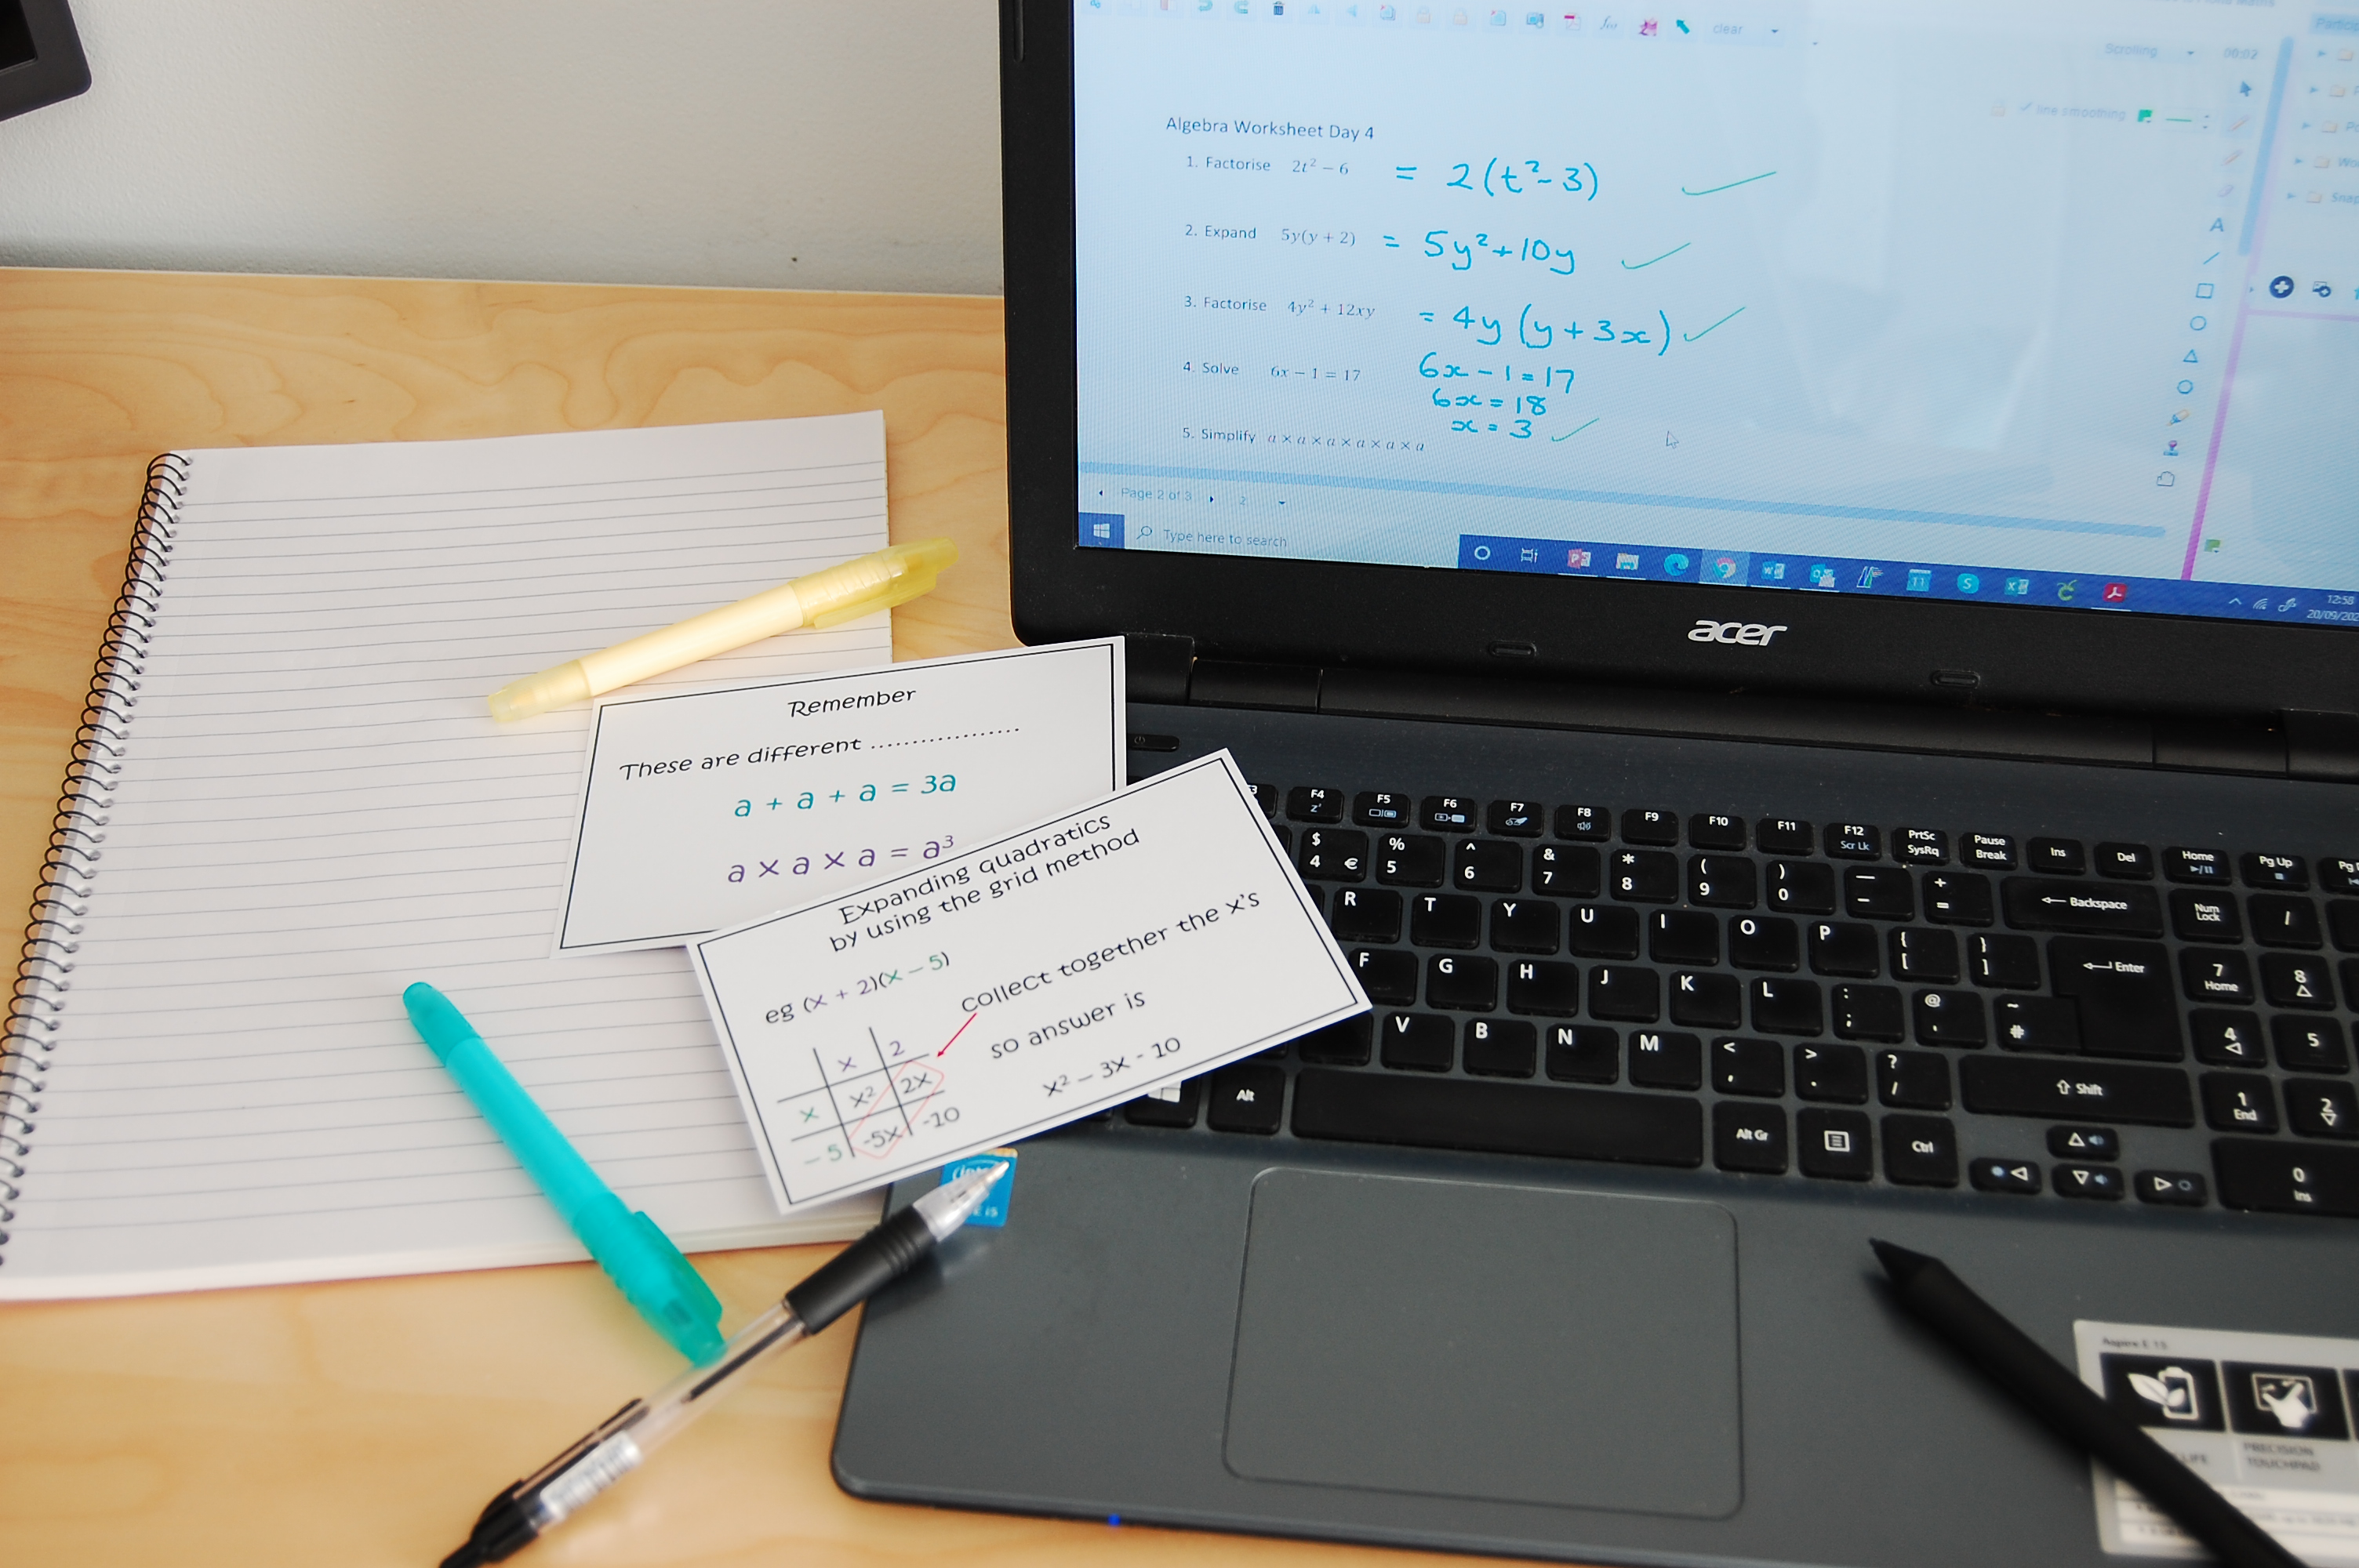 clear
Scrolling
00:02
line smoothing
Algebra Worksheet Day 4
1. Factorise 2t² − 6 = 2(t²-3)
2. Expand 5y(y + 2) = 5y²+10y
3. Factorise 4y² + 12xy = 4y(y+3x)
4. Solve 6x − 1 = 17 6x-1=17
6x=18
x=3
5. Simplify a × a × a × a × a × a
A
Page 2 of 3 2
Type here to search
12:58
acer
Remember
These are different ...................
a + a + a = 3a
a × a × a = a³
Expanding quadratics
by using the grid method
eg (x + 2)(x − 5)
collect together the x's
so answer is
x² − 3x - 10
x 2
x x² 2x
− 5 -5x -10
F4 F5 F6 F7 F8 F9 F10 F11 F12 Scr Lk PrtSc SysRq Pause Break Ins Del Home Pg Up
$ 4 € % 5 ^ 6 & 7 * 8 ( 9 ) 0 — - + = Backspace Num Lock /
R T Y U I O P { [ } ] Enter 7 Home 8
F G H J K L : ; @ ' ~ # 4 5
V B N M < , > . ? / Shift 1 End 2
Alt Alt Gr Ctrl 0 Ins
Aspire E 15
PRECISION
TOUCHPAD